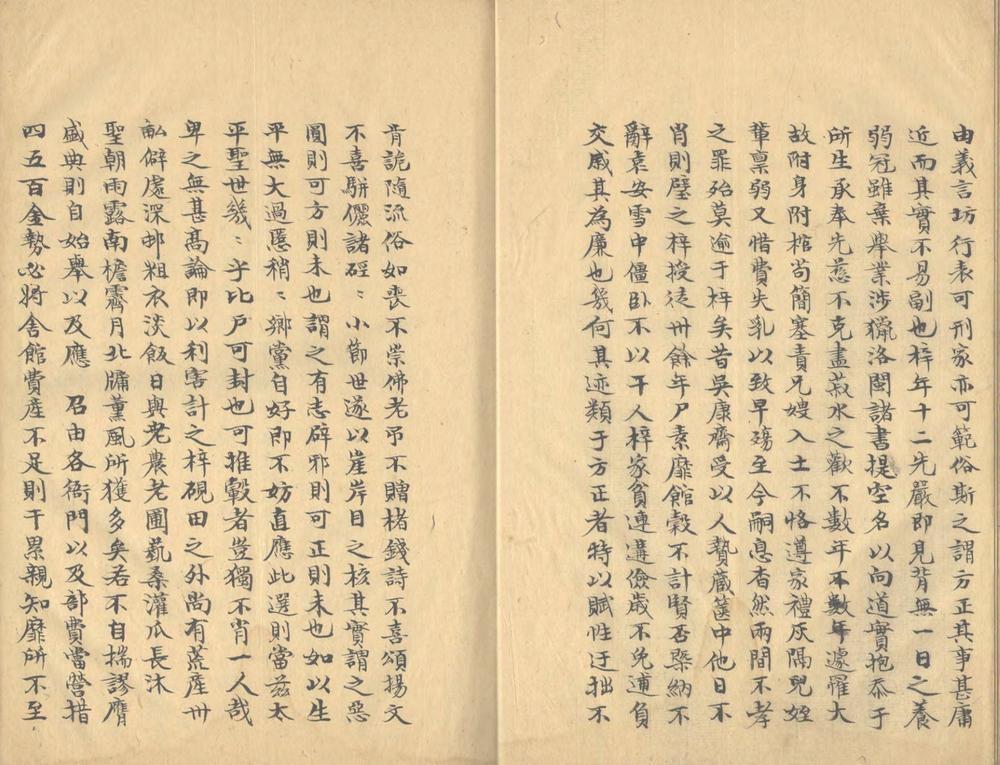 由義言坊行表可刑家亦可範俗斯之謂方正其事甚庸
近而其實不易副也梓年十二先嚴即見背無一日之養
弱冠雖棄舉業涉獵洛閩諸書提空名以向道實抱忝于
所生承奉先慈不克盡菽水之歡不數年不數年遽罹大
故附身附棺苟簡塞責兄嫂入土不恪遵家禮灰隔兒姪
輩禀弱又惜費失乳以致早殤至今嗣息杳然兩間不孝
之罪殆莫逾于梓矣昔吳康齋受以人贄藏篋中他日不
肖則璧之梓授徒卅餘年尸素靡館糓不計賢否槩納不
辭袁安雪中僵卧不以干人梓家貧連遘儉歲不免逋負
交戚其為廉也幾何其迹類于方正者特以賦性迂拙不
肯詭隨流俗如喪不崇佛老弔不贈楮錢詩不喜頌揚文
不喜駢儷諸硜〻小節世遂以崖岸目之核其實謂之惡
圓則可方則未也謂之有志辟邪則可正則未也如以生
平無大過慝稍〻鄉黨自好即不妨直應此選則當茲太
平聖世幾〻乎比戶可封也可推轂者豈獨不肖一人哉
卑之無甚髙論即以利害計之梓硯田之外尚有荒産卅
畝僻處深邨粗衣淡飯日與老農老圃蓺桑灌瓜長沐
聖朝雨露南檐霽月北牖薰風所獲多矣若不自揣謬膺
盛典則自始舉以及應　召由各衙門以及部費當營措
四五百金勢必將舍館費産不足則干累親知靡所不至